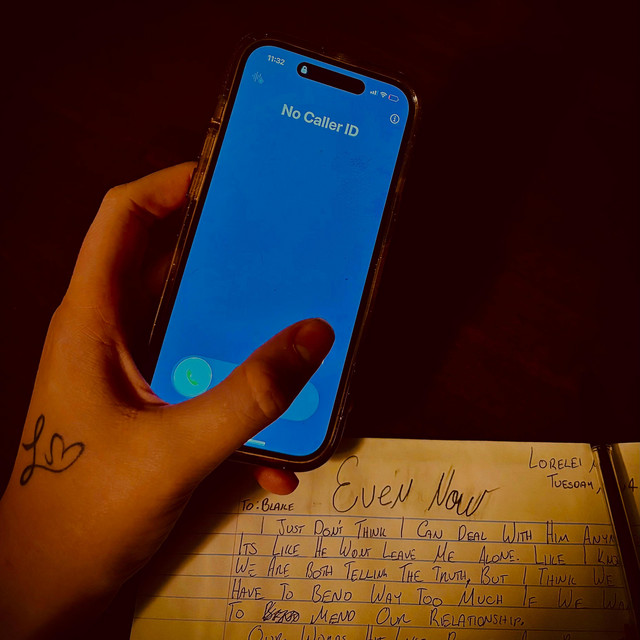 11:32
No Caller ID
LORELEI
TUESDAY, 4
EVEN NOW
TO: BLAKE
I JUST DON'T THINK I CAN DEAL WITH HIM
ITS LIKE HE WONT LEAVE ME ALONE. LIKE I
WE ARE BOTH TELLING THE TRUTH, BUT I THINK WE
HAVE TO BEND WAY TOO MUCH IF WE
TO MEND OUR RELATIONSHIP.
OUR WORDS HIT LIKE